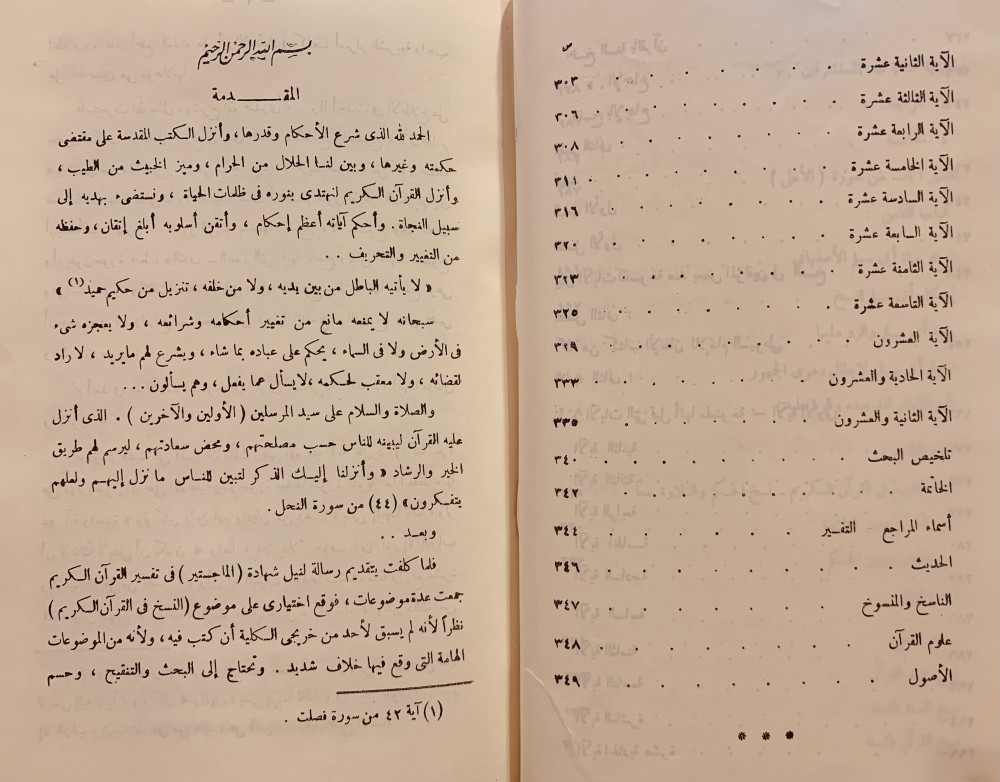 ص
الآية الثانية عشرة . . . . . . . ٣٠٣
الآية الثالثة عشرة . . . . . . . ٣٠٦
الآية الرابعة عشرة . . . . . . . ٣٠٨
الآية الخامسة عشرة . . . . . . . ٣١١
الآية السادسة عشرة . . . . . . . ٣١٦
الآية السابعة عشرة . . . . . . . ٣٢٠
الآية الثامنة عشرة . . . . . . . ٣٢٣
الآية التاسعة عشرة . . . . . . . ٣٢٥
الآية العشرون . . . . . . . ٣٢٩
الآية الحادية والعشرون . . . . . . . ٣٣٣
الآية الثانية والعشرون . . . . . . . ٣٣٥
تلخيص البحث . . . . . . . ٣٤٠
الخاتمة . . . . . . . ٣٤٢
أسماء المراجع التفسير . . . . . . ٣٤٤
الحديث . . . . . . . ٣٤٦
الناسخ والمنسوخ . . . . . . . ٣٤٧
علوم القرآن . . . . . . . ٣٤٨
الأصول . . . . . . . ٣٤٩
* * *
بسم الله الرحمن الرحيم
المقـــدمة
الحمد لله الذى شرع الأحكام وقدرها، وأنزل الكتب المقدسة على مقتضى
حكمته وغيرها ، وبين لنـا الحلال من الحرام، وميز الخبيث من الطيب ،
وأنزل القرآن الكريم لنهتدى بنوره فى ظلمات الحياة ، ونستضىء بهديه إلى
سبيل النجاة . وأحكم آياته أعظم إحكام ، وأتقن أسلوبه أبلغ إتقان، وحفظه
من التغيير والتحريف . .
« لا يأتيه الباطل من بين يديه ، ولا من خلفه ، تنزيل من حكيم حميد(١) »
سبحانه لا يمنعه مانع من تغيير أحكامه وشرائعه ، ولا يعجزه شىء
فى الأرض ولا فى السماء ، يحكم على عباده بما شاء ، ويشرع لهم ما يريد ، لا راد
لقضائه ، ولا معقب لحكمه ، لا يسأل عما يفعل ، وهم يسألون . . .
والصلاة والسلام على سيد المرسلين ( الأولين والآخرين ) . الذى أنزل
عليه القرآن ليبينه للناس حسب مصلحتهم ، ومحض سعادتهم ، ليرسم لهم طريق
الخير والرشاد « وأنزلنا إليـك الذكر لتبين للنـاس ما نزل إليهـم ولعلهم
يتفـكرون» (٤٤) من سورة النحل .
وبعـد . .
فلما كلفت بتقديم رسالة لنيل شهادة (الماجستير ) فى تفسير القرآن الكريم
جمعت عدة موضوعات ، فوقع اختيارى على موضوع (النسخ فى القرآن الكريم )
نظراً لأنه لم يسبق لأحد من خريجى الكلية أن كتب فيه ، ولأنه من الموضوعات
الهامة التى وقع فيها خلاف شديد . وتحتاج إلى البحث والتنقيح ، وحسم
(١) آية ٤٢ من سورة فصلت .